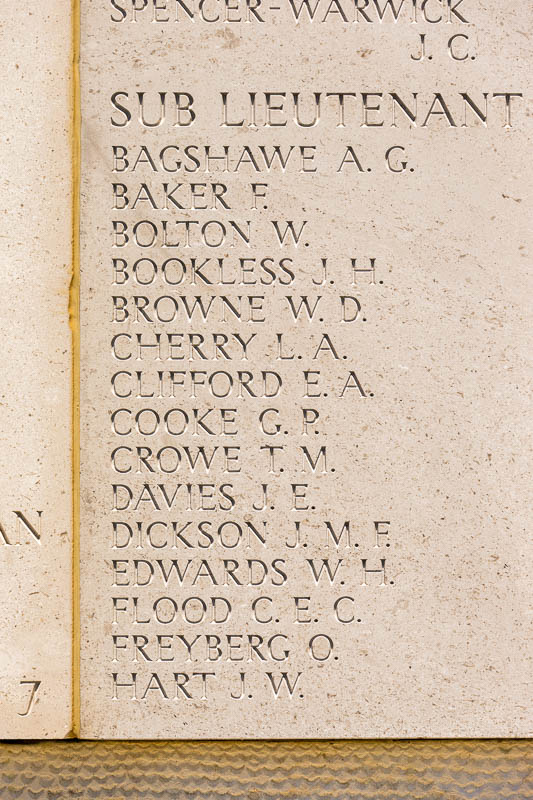 SPENCER-WARWICK
J. C.
SUB LIEUTENANT
BAGSHAWE A. G.
BAKER F.
BOLTON W.
BOOKLESS J. H.
BROWNE W. D.
CHERRY L. A.
CLIFFORD E. A.
COOKE G. P.
CROWE T. M.
DAVIES J. E.
DICKSON J. M. F.
EDWARDS W. H.
FLOOD C. E. C.
FREYBERG O.
HART J. W.
AN
7